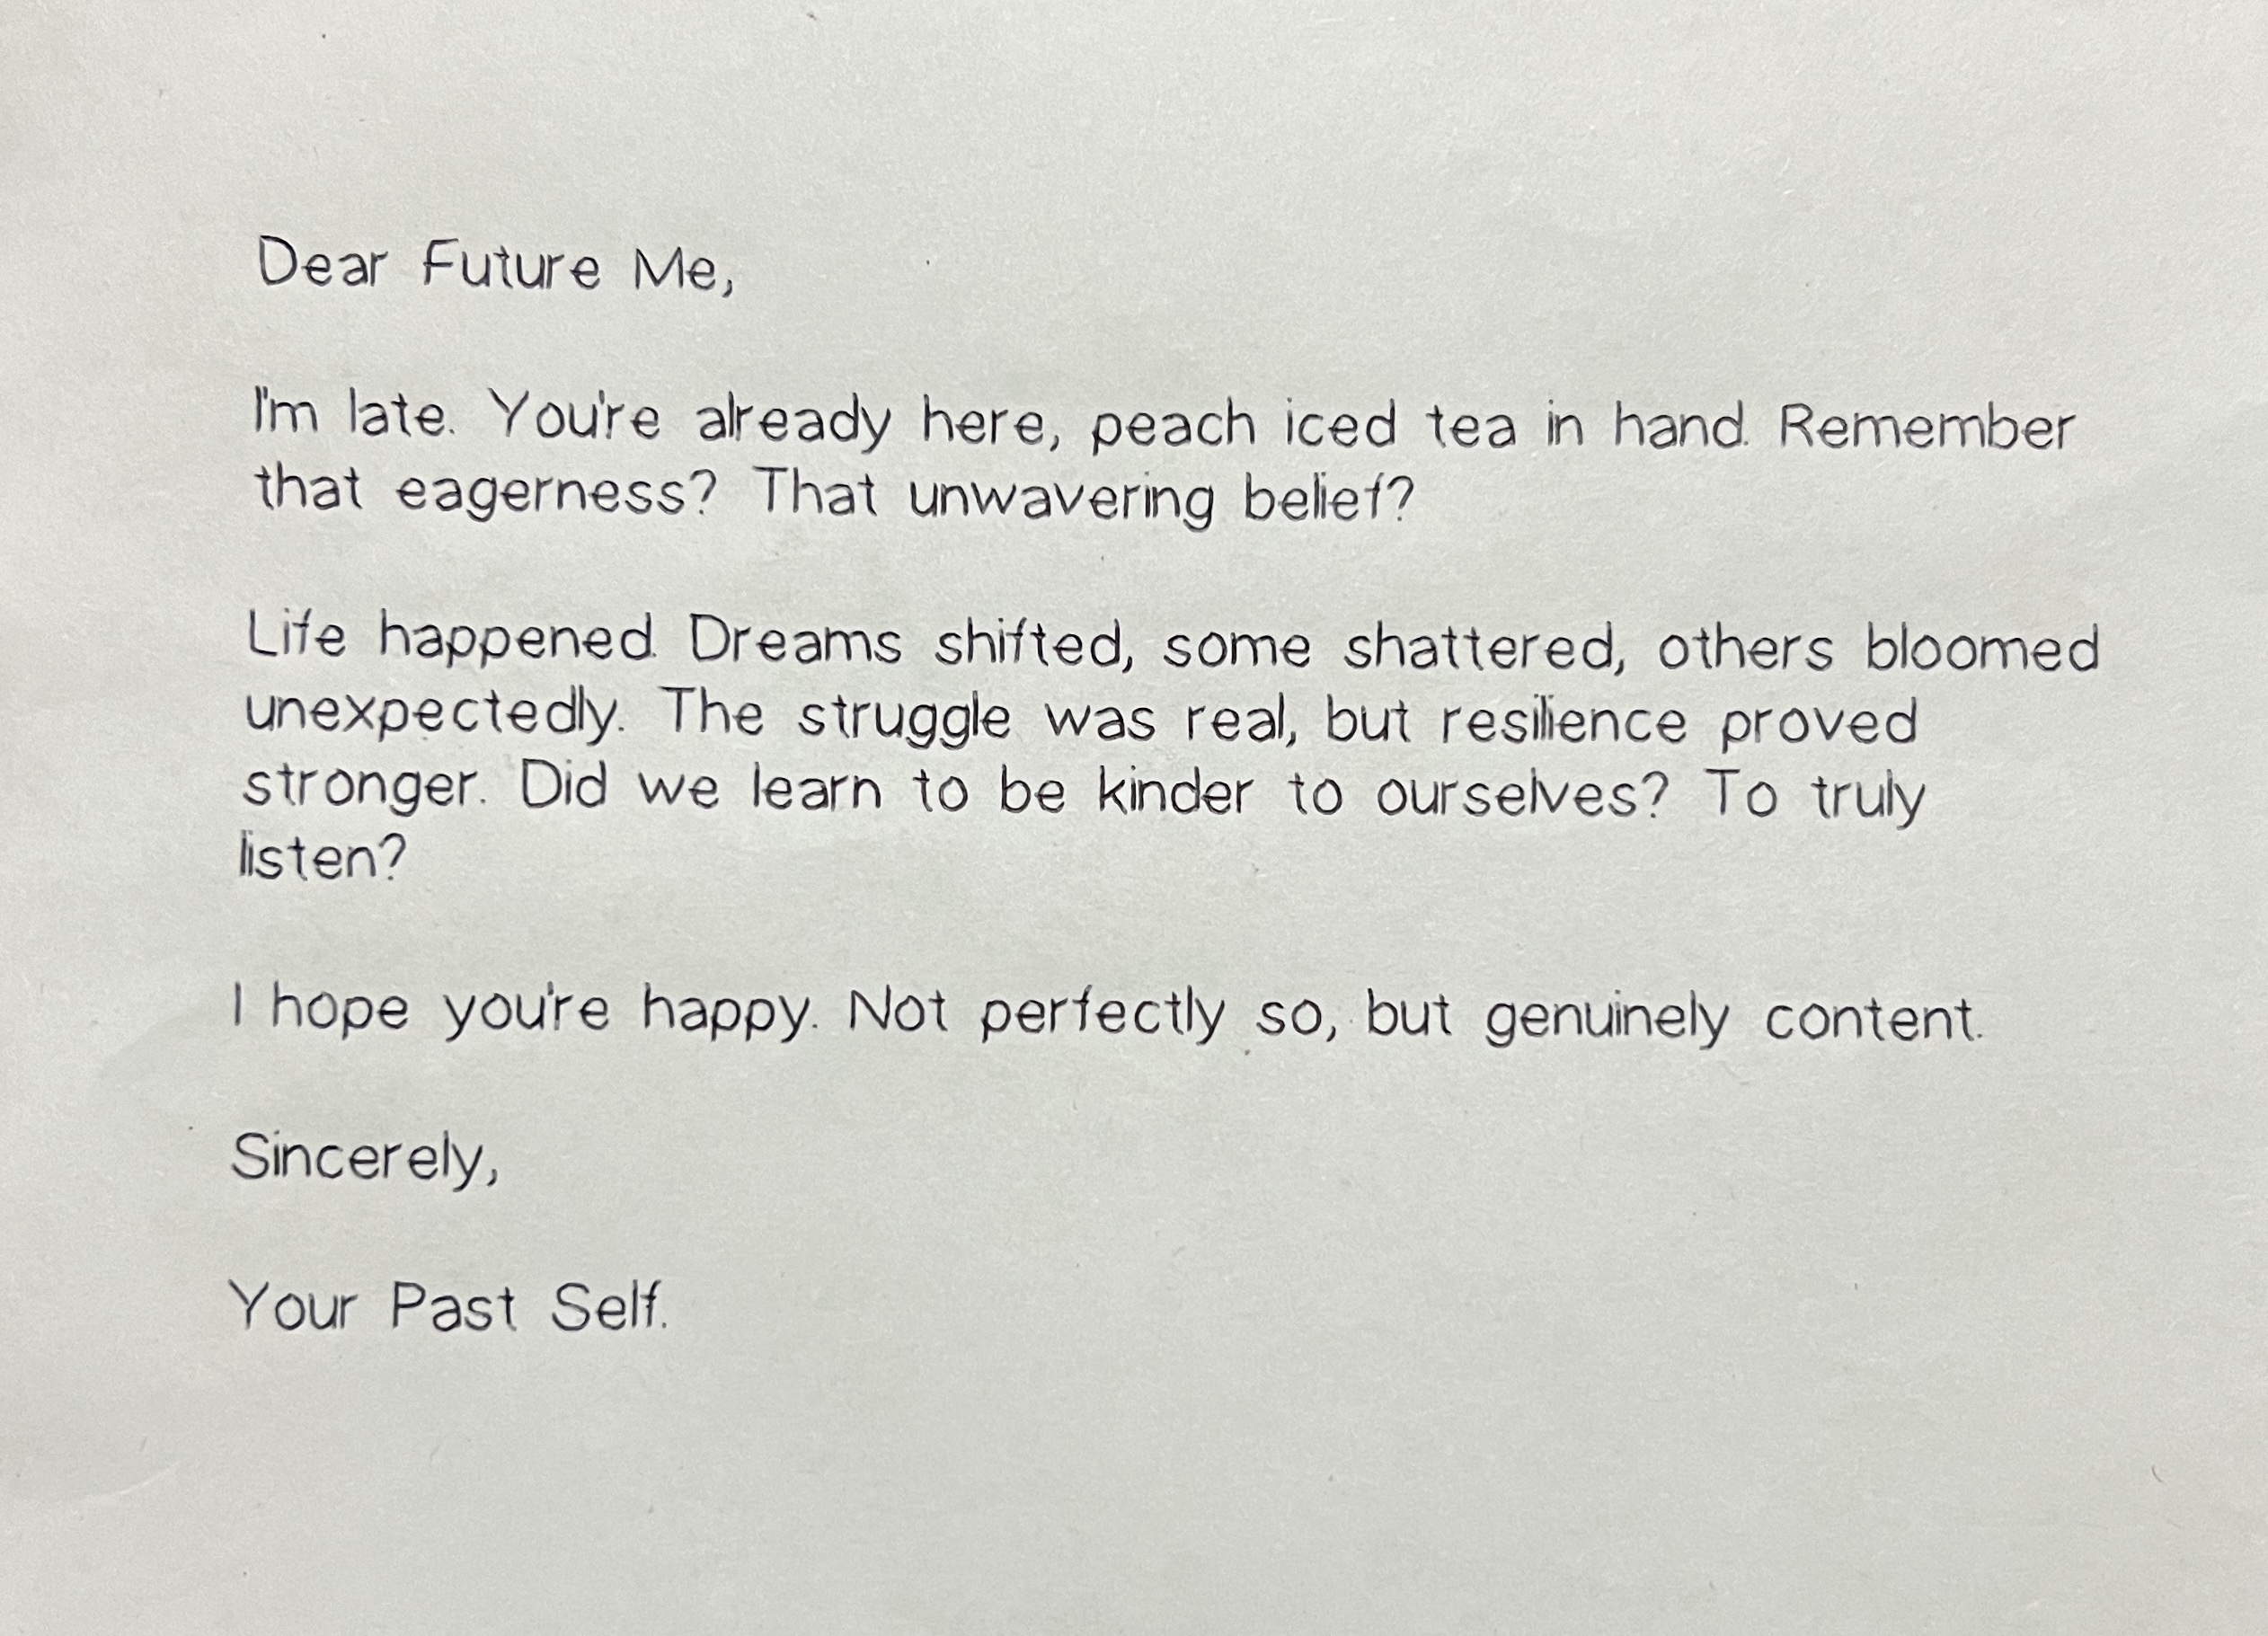 Dear Future Me,
I'm late. You're already here, peach iced tea in hand. Remember
that eagerness? That unwavering belief?
Life happened. Dreams shifted, some shattered, others bloomed
unexpectedly. The struggle was real, but resilience proved
stronger. Did we learn to be kinder to ourselves? To truly
listen?
I hope you're happy. Not perfectly so, but genuinely content.
Sincerely,
Your Past Self.